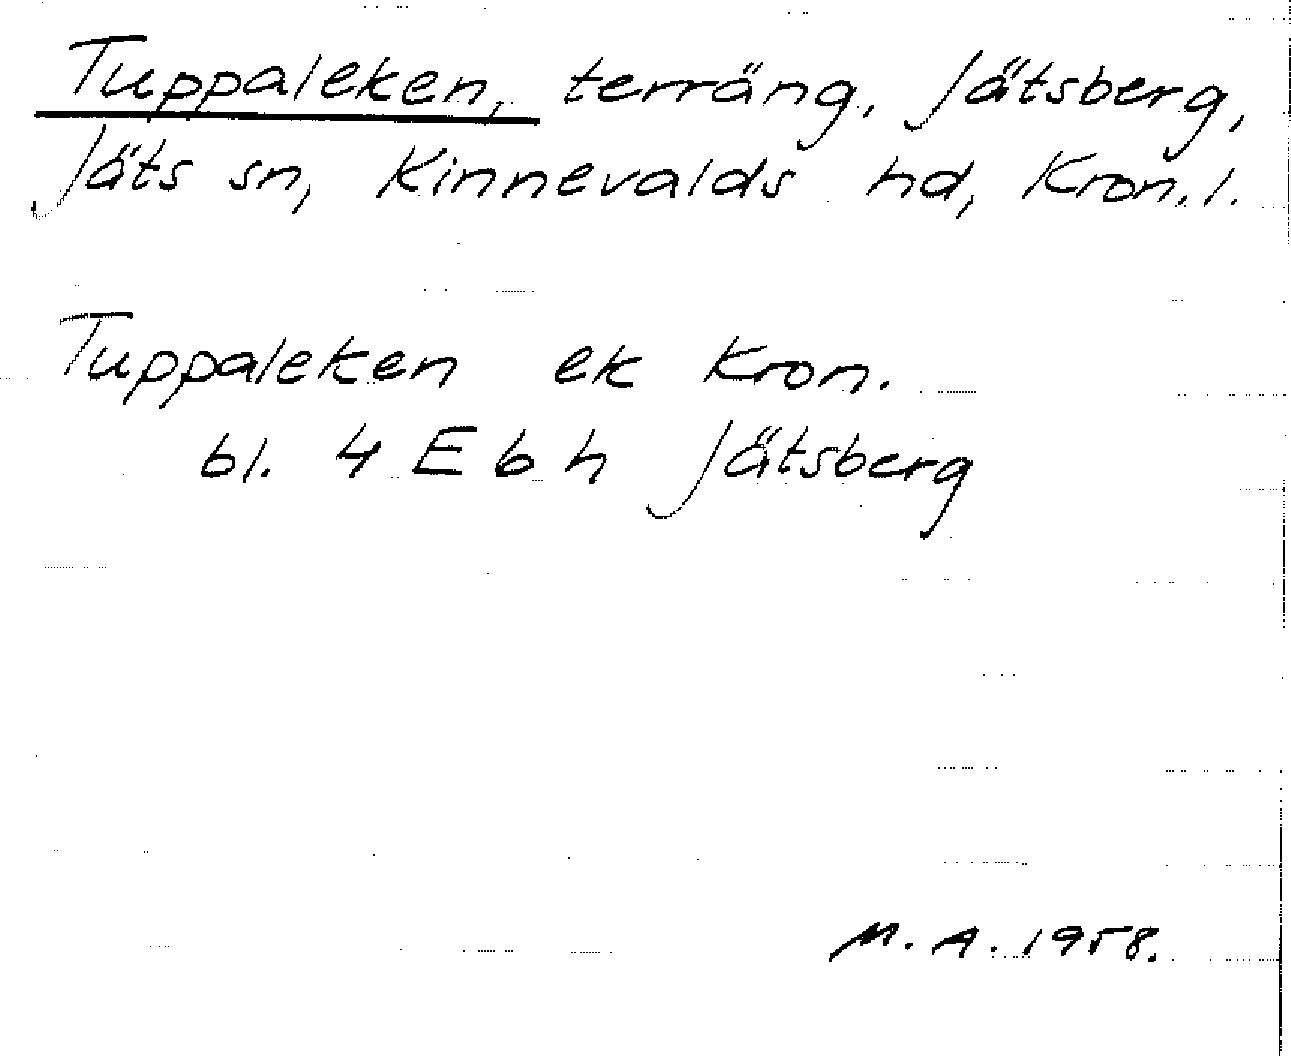 Tuppaleken, terräng, Jätsberg,
Jäts sn, Kinnevalds hd, Kron. l.
Tuppaleken ek Kron.
bl. 4 E 6 h Jätsberg
M. A. 1958.